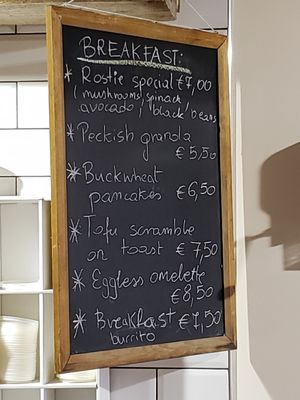 BREAKFAST:
* Rostie special €7,00
(mushrooms, spinach
avocado, black beans
* Peckish granola
€5,50
* Buckwheat
pancakes €6,50
* Tofu scramble
on toast €7,50
* Eggless omelette
€8,50
* Breakfast €7,50
burrito